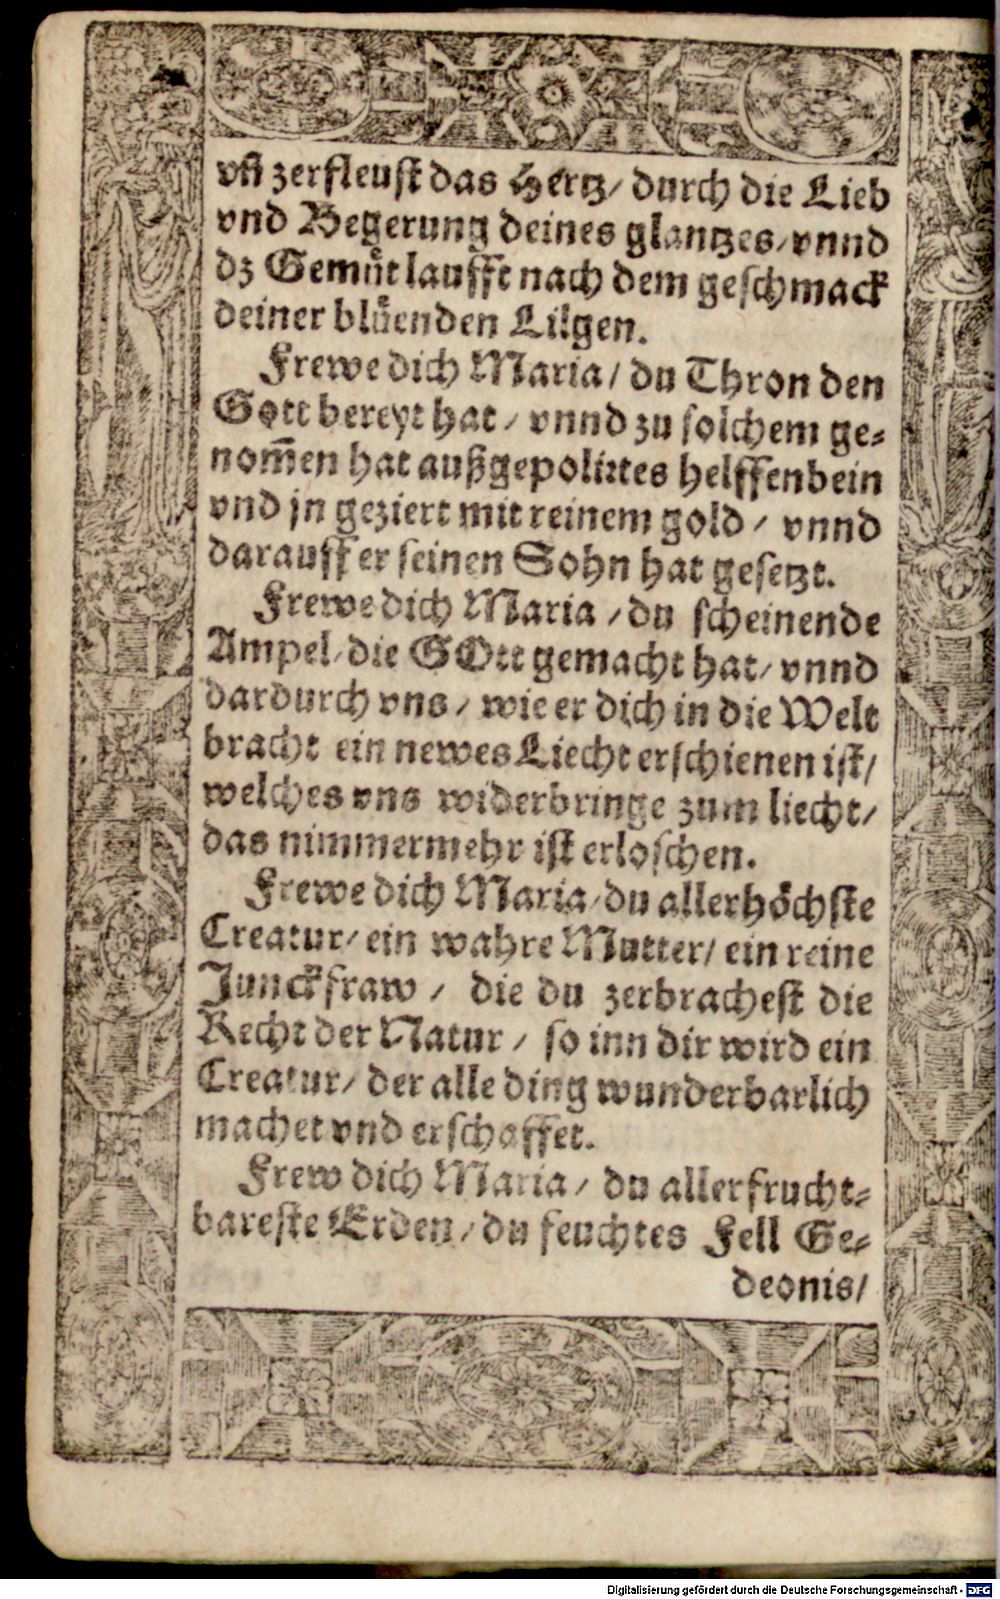 vñ zerfleust das Hertz/ durch die Lieb
vnd Begerung deines glantzes/ vnnd
dz Gemuͤt laufft nach dem geschmack
deiner bluͤenden Lilgen.
Frewe dich Maria/ du Thron den
Gott bereyt hat/ vnnd zu solchem ge-
nom̃en hat außgepolirtes helffenbein
vnd jn geziert mit reinem gold/ vnnd
darauff er seinen Sohn hat gesetzt.
Frewe dich Maria/ du scheinende
Ampel/ die GOtt gemacht hat/ vnnd
dardurch vns/ wie er dich in die Welt
bracht ein newes Liecht erschienen ist/
welches vns widerbringe zum liecht/
das nimmermehr ist erloschen.
Frewe dich Maria/ du allerhoͤchste
Creatur/ ein wahre Mutter/ ein reine
Junckfraw/ die du zerbrachest die
Recht der Natur/ so inn dir wird ein
Creatur/ der alle ding wunderbarlich
machet vnd erschaffet.
Frew dich Maria/ du allerfrucht-
bareste Erden/ du feuchtes Fell Ge-
deonis/
Digitalisierung gefördert durch die Deutsche Forschungsgemeinschaft - DFG